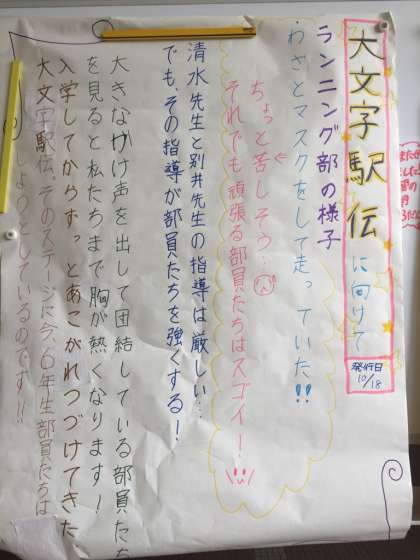 大文字駅伝に向けて
発行日
10/18
ランニング部の様子
・わざとマスクをして走っていた!!
ちょっと苦しそう…
それでも頑張る部員たちはスゴイ!
清水先生と別井先生の指導は厳しい…
でも、その指導が部員たちを強くする!
大きなかけ声を出して団結している部員たち
を見ると私たちまで胸が熱くなります!
入学してからずっとあこがれつづけてきた
大文字駅伝。そのステージに今、6年生部員たちは
しようとしているのです!!